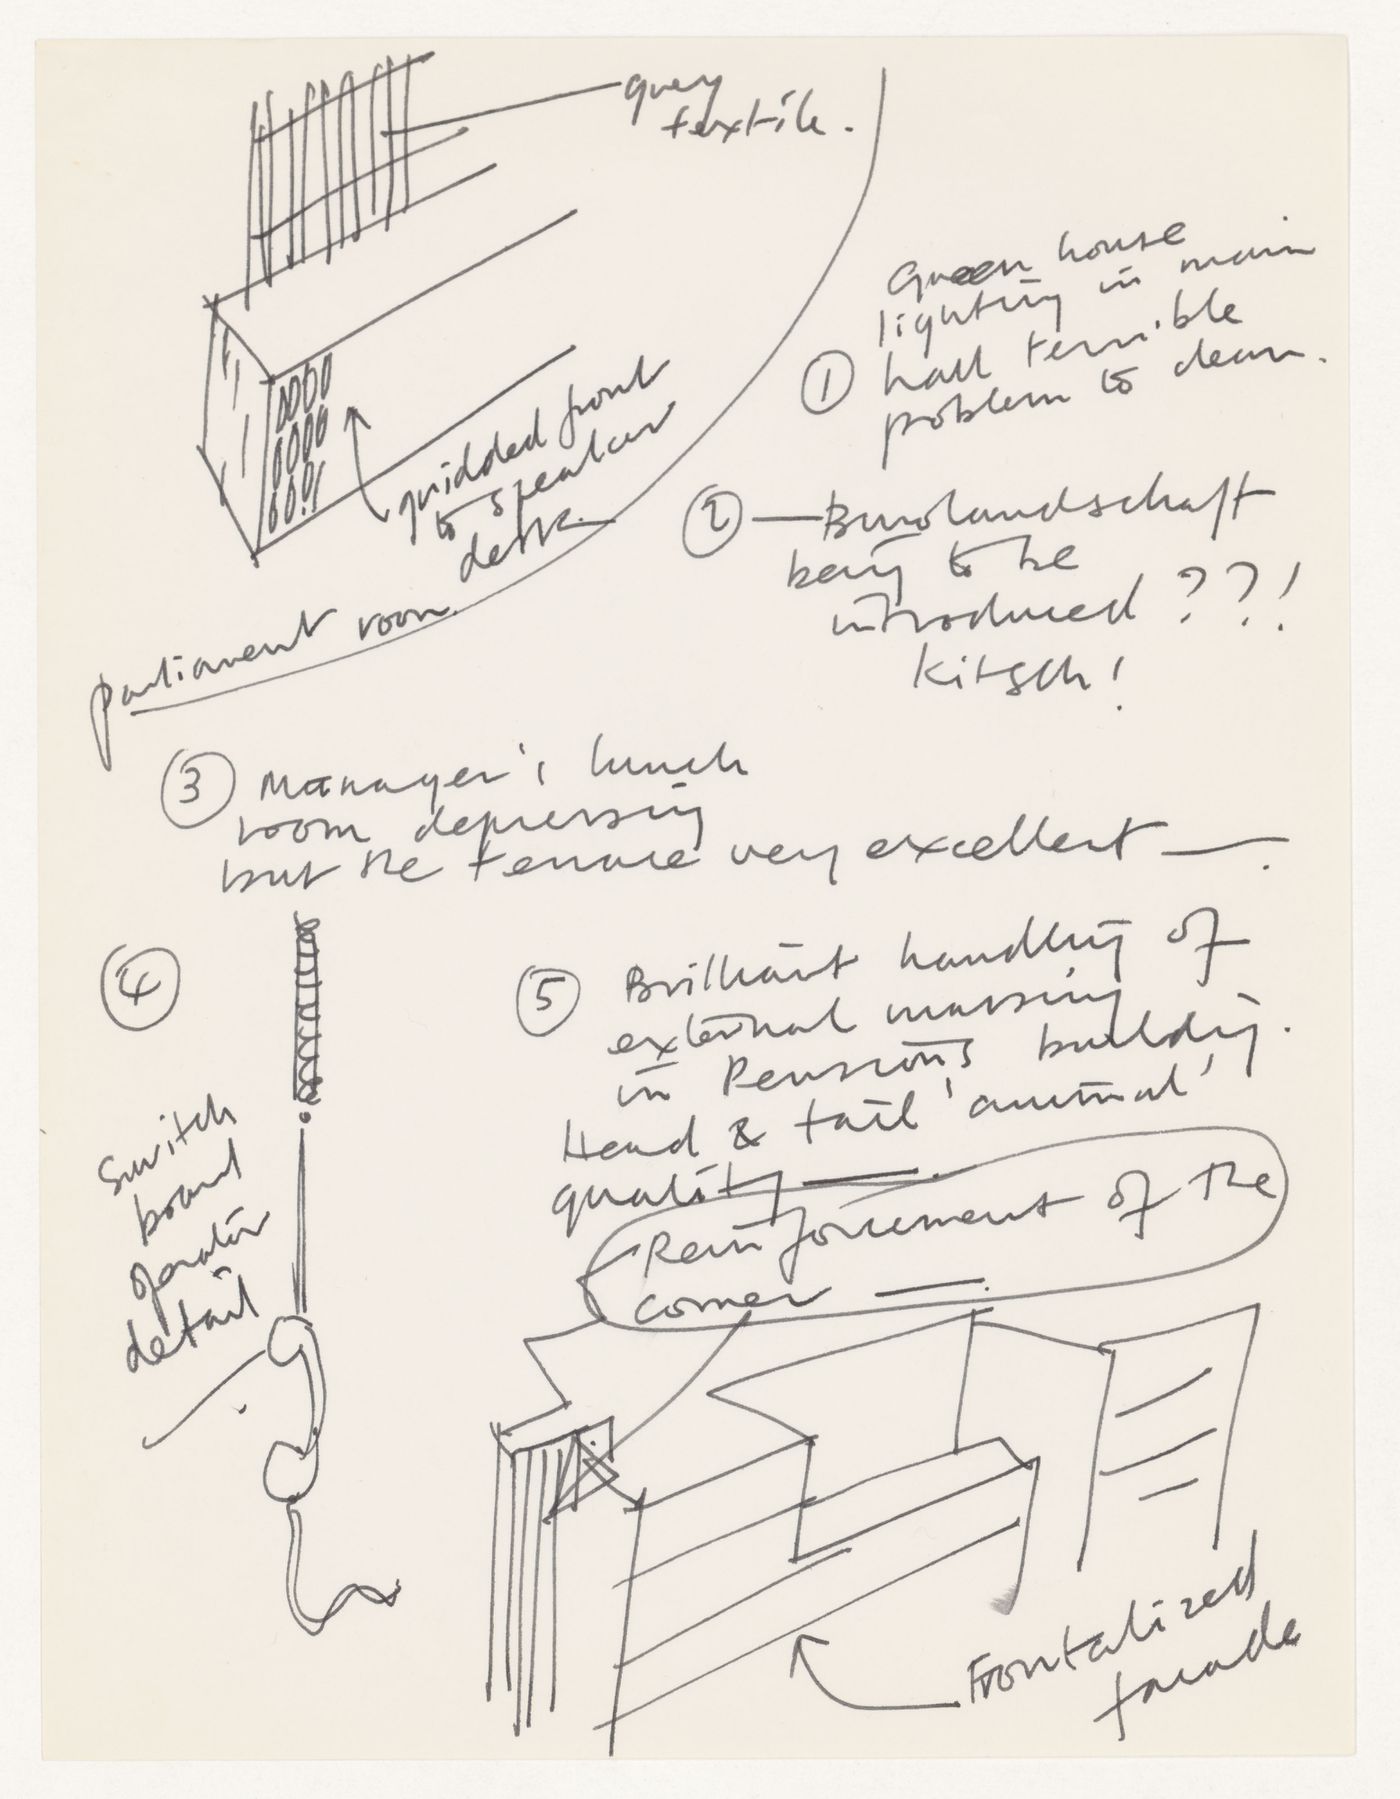 grey
textile.
gridded front
to speaker
desk.
parliament room
Green house
lighting in main
① hall terrible
problem to clean.
② — Burolandschaft
being to be
introduced ??!
Kitsch!
③ Manager's lunch
room depressing
but the terrace very excellent —.
④
Switch
board
operator
detail
⑤ Brilliant handling of
external massing
in Pensions building.
Head & tail 'animal'
quality —.
Reinforcement of the
corner —.
Frontalized
facade